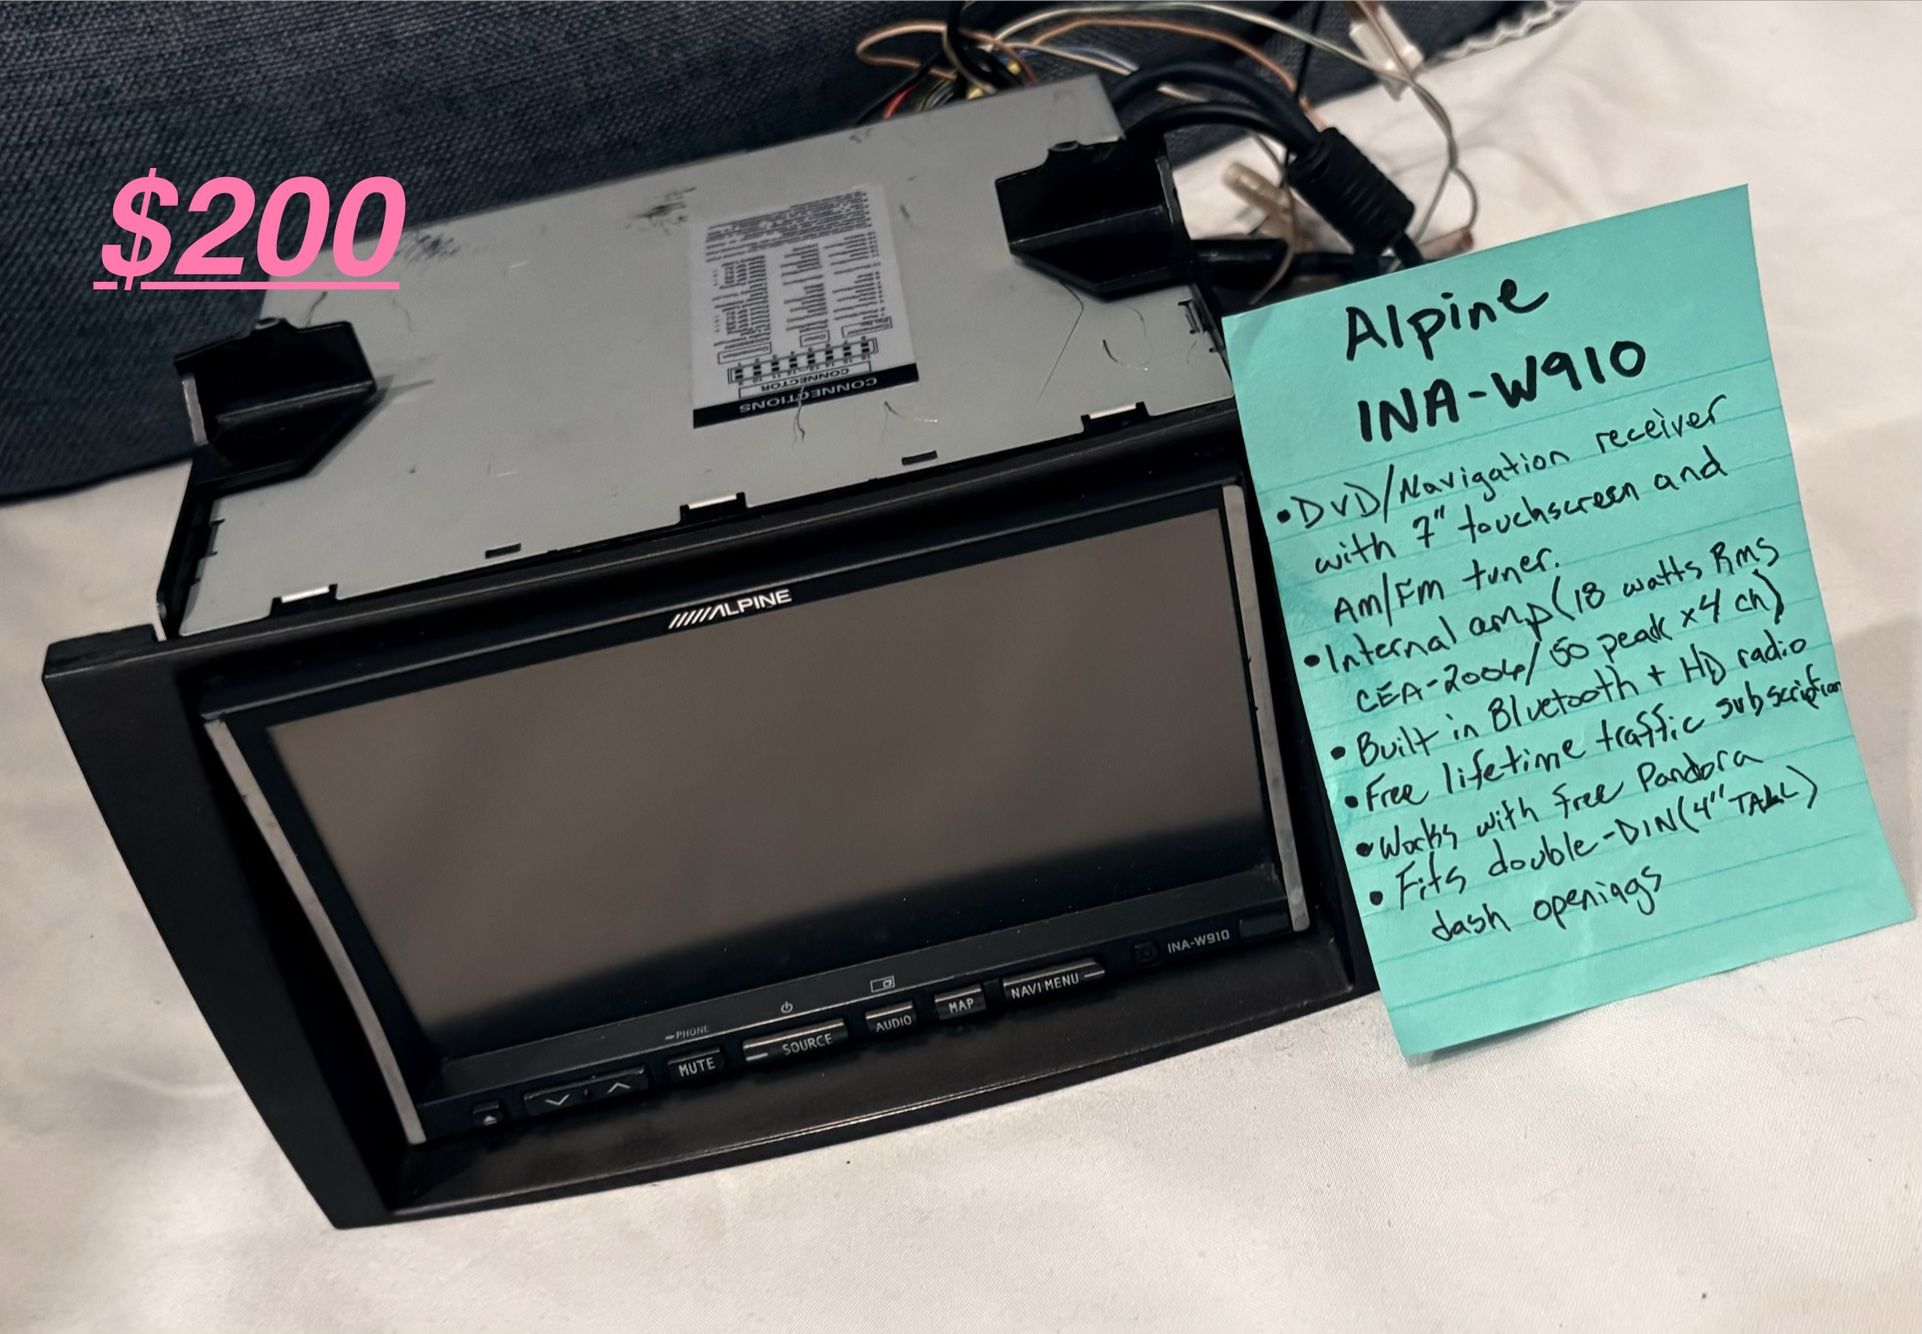 $200
CONNECTIONS
CONNECTOR
ALPINE
INA-W910
PHONE
MUTE
SOURCE
AUDIO
MAP
NAVI MENU
Alpine
INA-W910
• DVD/Navigation receiver
with 7" touchscreen and
Am/Fm tuner.
• Internal amp (18 watts Rms
CEA-2006/50 peak x4 ch)
• Built in Bluetooth + HD radio
• Free lifetime traffic subscription
• Works with free Pandora
• Fits double-DIN (4" TALL)
dash openings